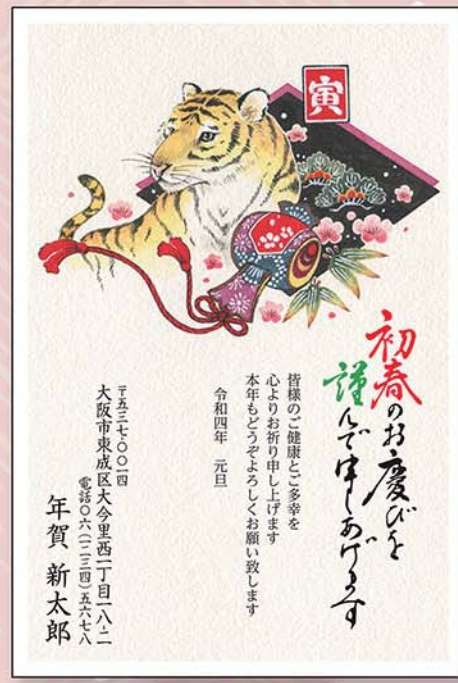 寅
初春のお慶びを
謹んで申しあげます
皆様のご健康とご多幸を
心よりお祈り申し上げます
本年もどうぞよろしくお願い致します
令和四年　元旦
〒五三七-〇〇一四
大阪市東成区大今里西一丁目一八-二
電話〇六(一二三四)五六七八
年賀 新太郎